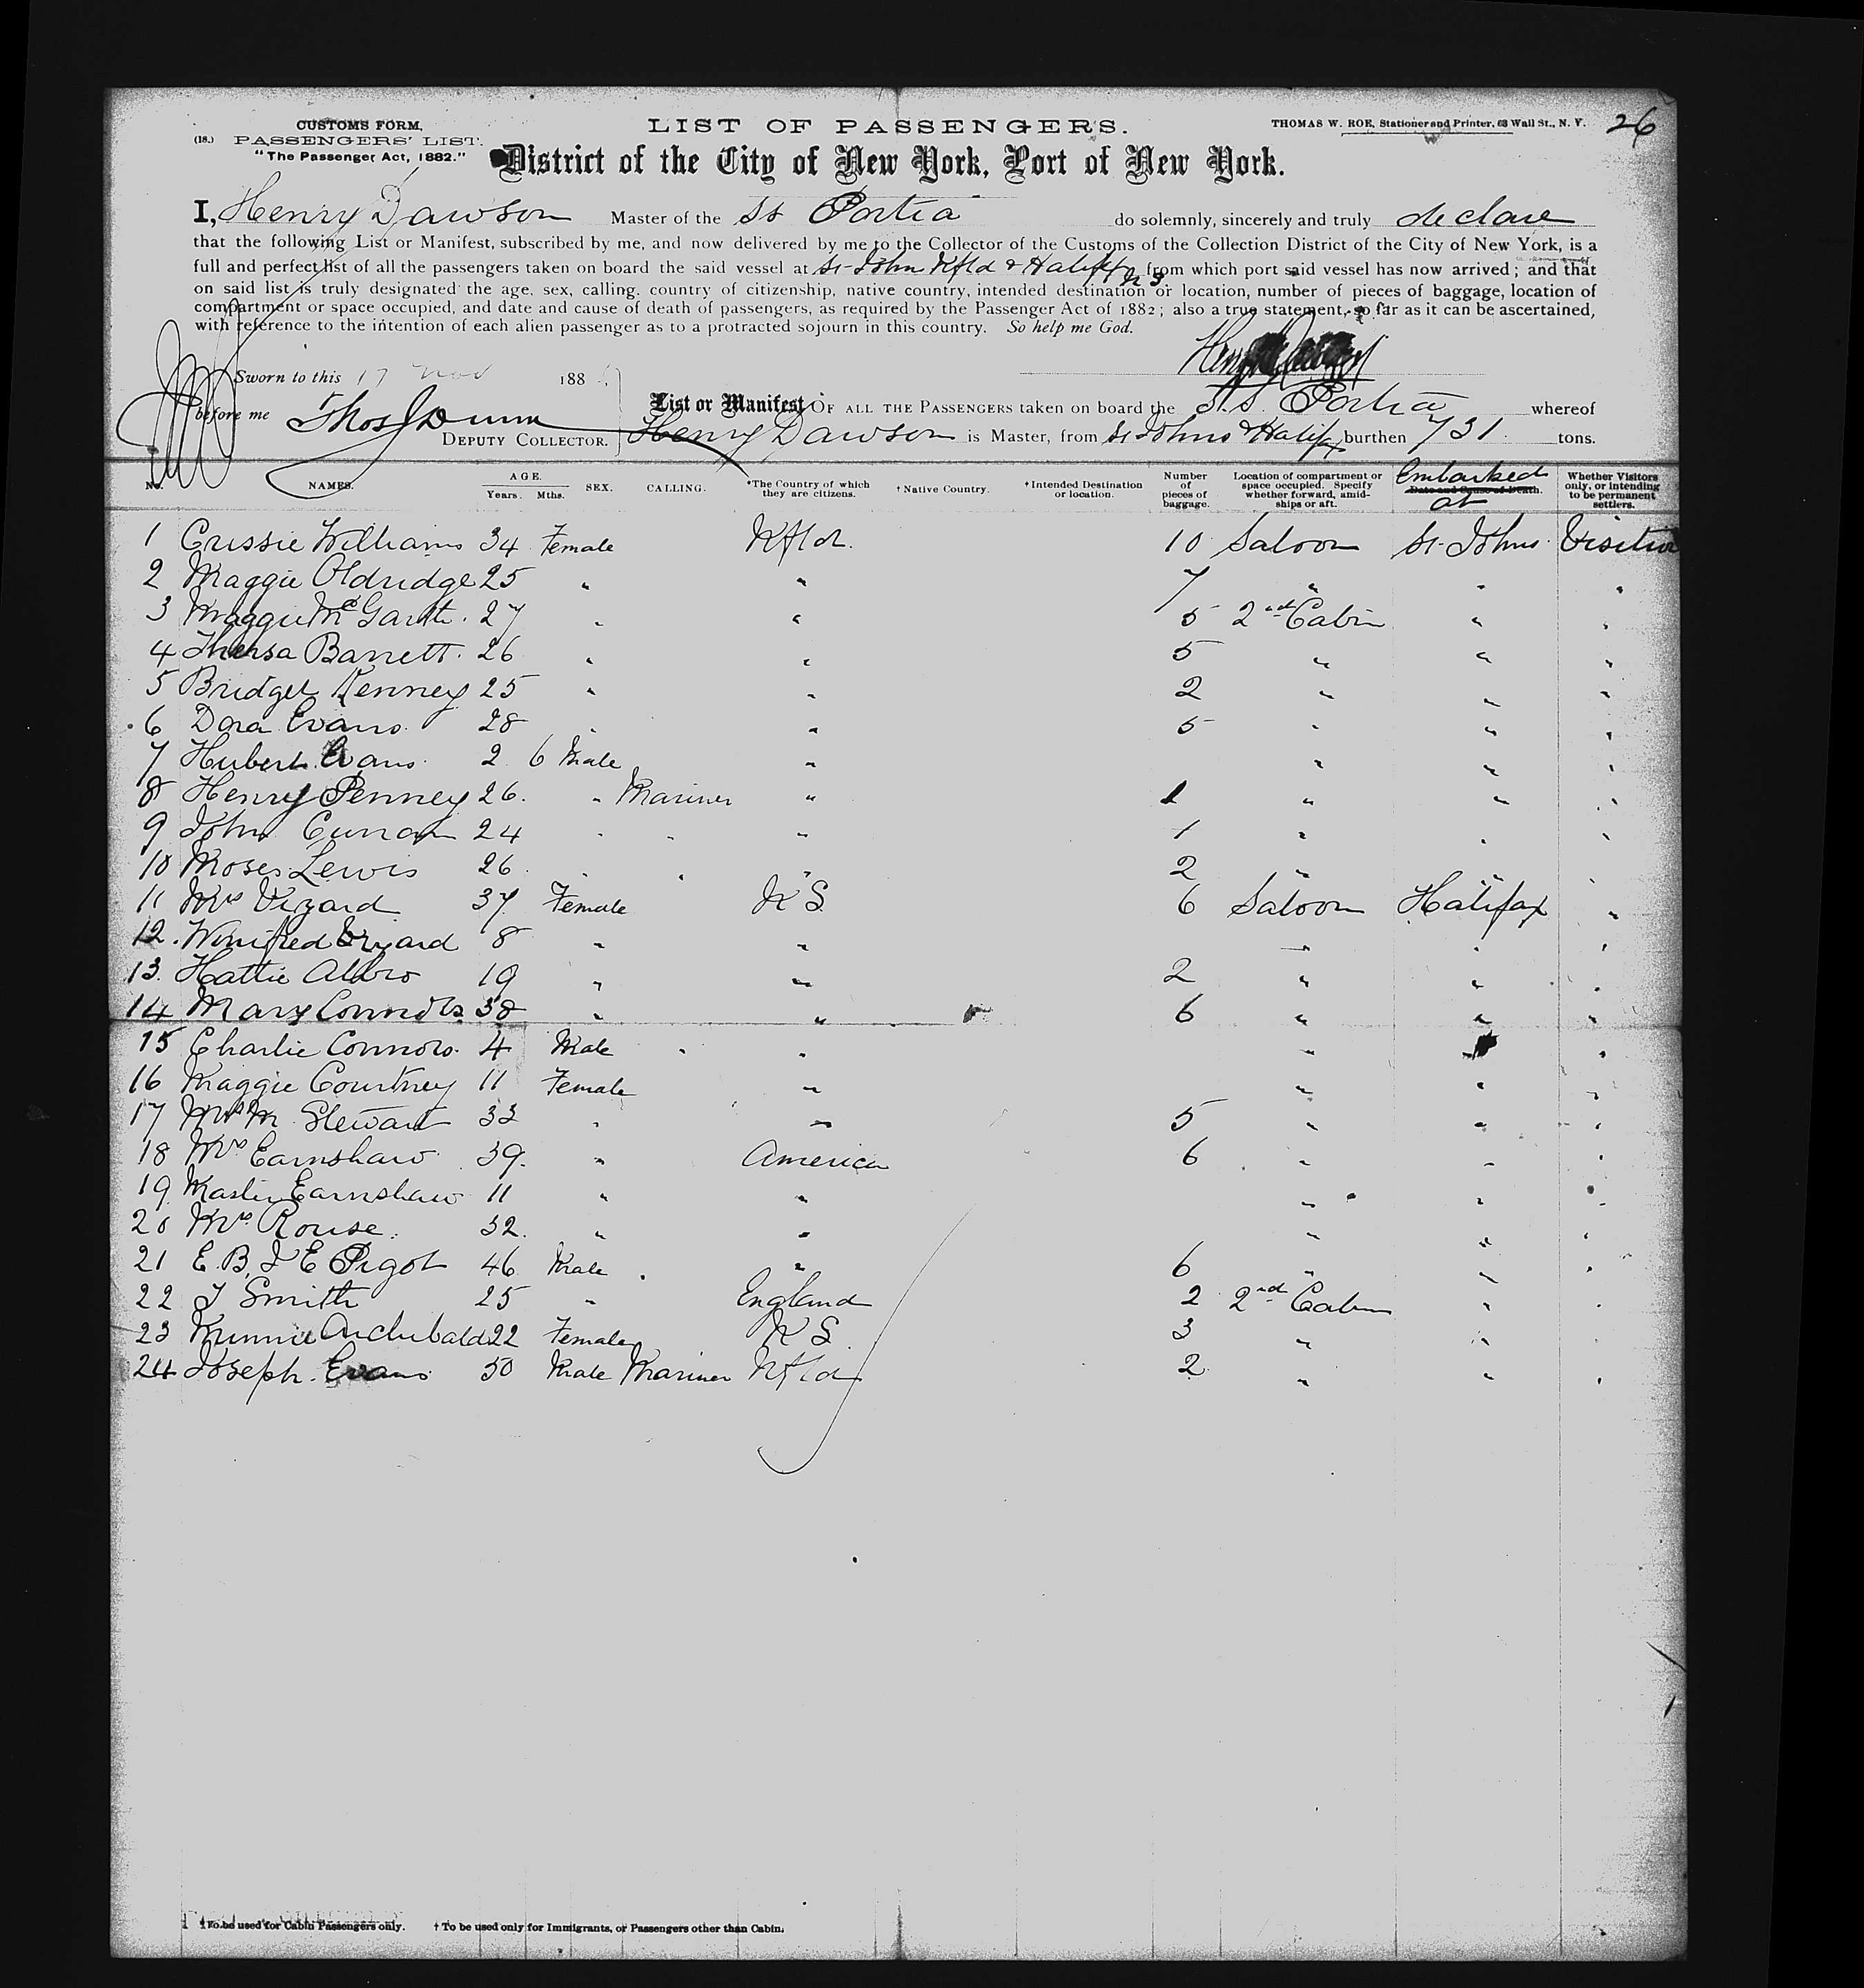 26
CUSTOMS FORM, LIST OF PASSENGERS. THOMAS W. ROE, Stationer and Printer, 63 Wall St., N. Y.
(18.) PASSENGERS' LIST.
"The Passenger Act, 1882." District of the City of New York, Port of New York.
I, Henry Dawson Master of the SS Portia do solemnly, sincerely and truly declare
that the following List or Manifest, subscribed by me, and now delivered by me to the Collector of the Customs of the Collection District of the City of New York, is a
full and perfect list of all the passengers taken on board the said vessel at St John Nfld & Halifax N S. from which port said vessel has now arrived; and that
on said list is truly designated the age, sex, calling, country of citizenship, native country, intended destination or location, number of pieces of baggage, location of
compartment or space occupied, and date and cause of death of passengers, as required by the Passenger Act of 1882; also a true statement, so far as it can be ascertained,
with reference to the intention of each alien passenger as to a protracted sojourn in this country. So help me God.
Sworn to this 17 Nov 188
before me Thos J Dunn
DEPUTY COLLECTOR.
List or Manifest OF ALL THE PASSENGERS taken on board the S.S. Portia whereof
Henry Dawson is Master, from St Johns & Halifax burthen 731 tons.
No. NAMES. AGE. Years. Mths. SEX. CALLING. *The Country of which they are citizens. † Native Country. † Intended Destination or location. Number of pieces of baggage. Location of compartment or space occupied. Specify whether forward, amidships or aft. Embarked at Date and Cause of Death. Whether Visitors only, or intending to be permanent settlers.
1 Crissie Williams 34 Female Nfld. 10 Saloon St Johns Visitor
2 Maggie Oldridge 25 " " 7 " " "
3 Maggie McGarth. 27 " " 5 2nd Cabin " "
4 Thersa Barrett. 26 " " 5 " " "
5 Bridget Kenney 25 " " 2 " " "
6 Dora Evans. 28 " " 5 " " "
7 Hubert Evans. 2 6 Male " " " "
8 Henry Penney 26. " Mariner " 1 " " "
9 John Curran 24 " " " 1 " " "
10 Moses Lewis 26 " " " 2 " " "
11 Mrs Vizard 37 Female N S. 6 Saloon Halifax "
12. Winifred Vizard 8 " " " " "
13. Hattie Albro 19 " " 2 " " "
14 Mary Connors 38 " " 6 " " "
15 Charlie Connors. 4 Male " " "
16 Maggie Courtney 11 Female " " " "
17 Mrs M Stewart 33 " " 5 " " "
18 Mrs Earnshaw 39. " America 6 " " "
19 Master Earnshaw 11 " " " " "
20 Mrs Rouse. 32. " " " " "
21 E. B. Pigot 46 Male " 6 " " "
22 J Smith 25 " England 2 2nd Cabin " "
23 Minnie Archibald 22 Female N S. 3 " " "
24 Joseph Evans 50 Male Mariner Nfld 2 " " "
* To be used for Cabin Passengers only. † To be used only for Immigrants, or Passengers other than Cabin.